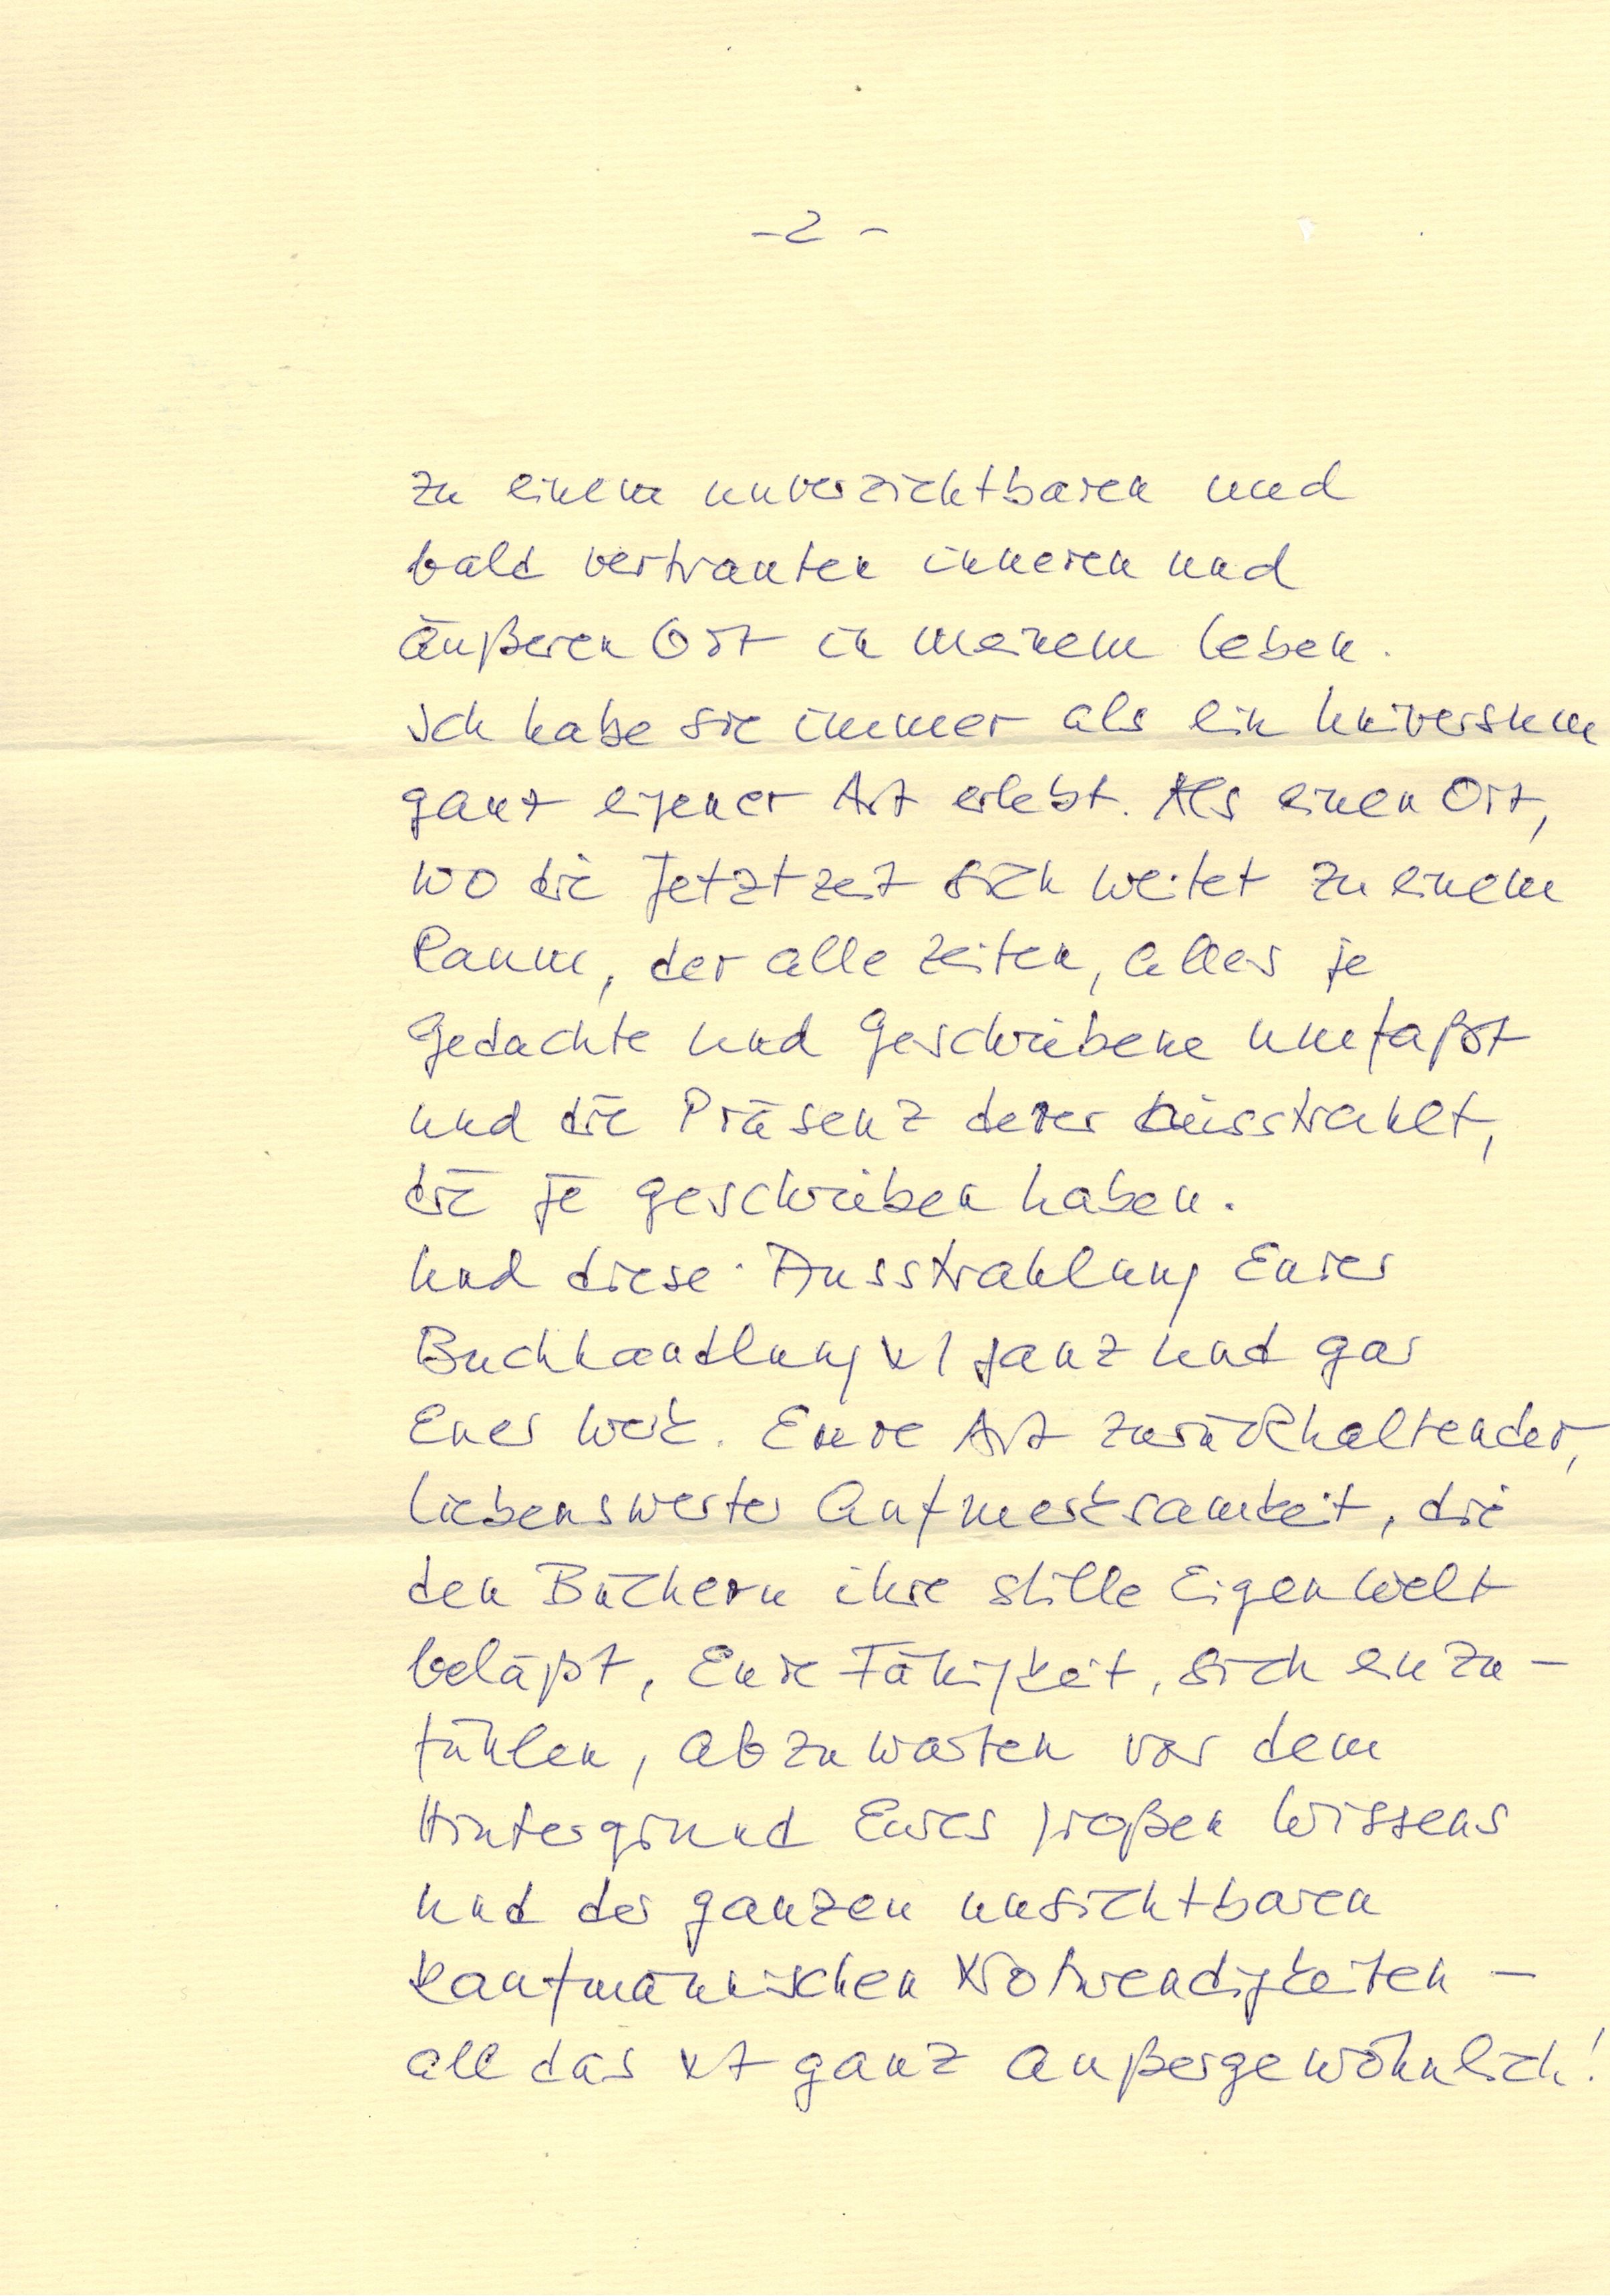 - 2 -
zu einem unverzichtbaren und
bald vertrauten inneren und
äußeren Ort in meinem Leben.
Ich habe sie immer als ein Universum
ganz eigener Art erlebt. Als einen Ort,
wo die Jetztzeit sich weitet zu einem
Raum, der alle Zeiten, alles je
Gedachte und Geschriebene umfaßt
und die Präsenz derer ausstrahlt,
die je geschrieben haben.
Und diese Ausstrahlung Eurer
Buchhandlung ist ganz und gar
Euer Werk. Eure Art zurückhaltender,
liebenswerter Aufmerksamkeit, die
den Büchern ihre stille Eigenwelt
beläßt, Eure Fähigkeit, sich einzu-
fühlen, abzuwarten vor dem
Hintergrund Eures großen Wissens
und der ganzen unsichtbaren
kaufmännischen Notwendigkeiten –
all das ist ganz außergewöhnlich!